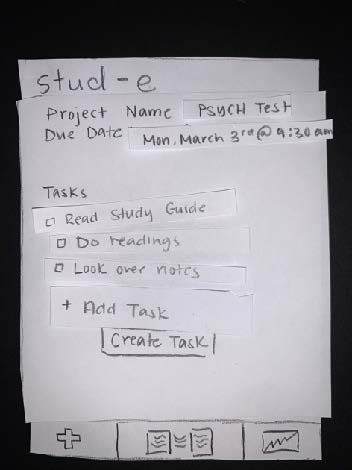 stud-e
Project Name PSYCH Test
Due Date Mon. March 3rd @ 9:30 am
Tasks
Read Study Guide
Do readings
Look over notes
+ Add Task
Create Task